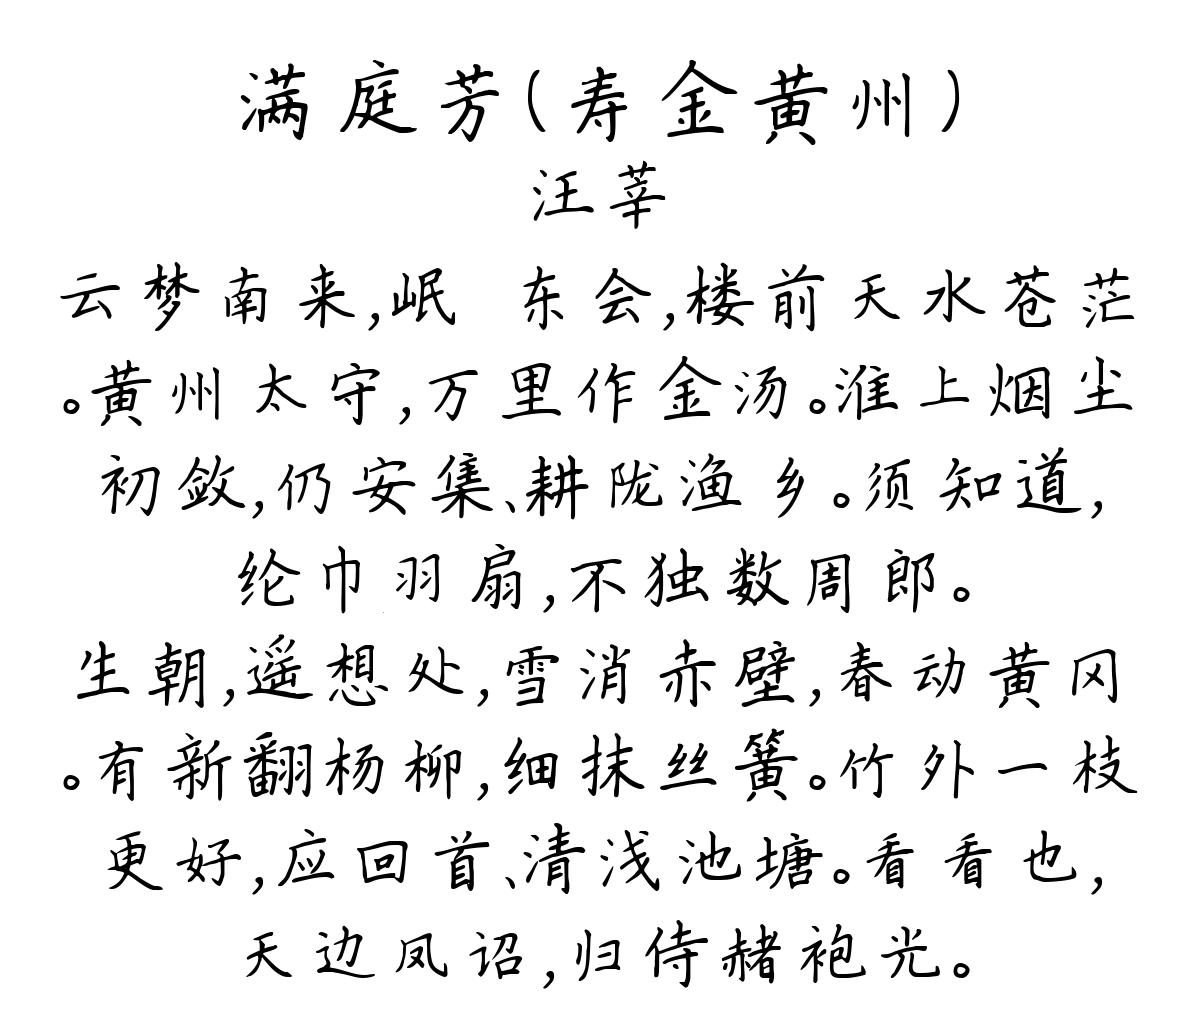 满庭芳(寿金黄州)
汪莘
云梦南来,岷 东会,楼前天水苍茫
。黄州太守,万里作金汤。淮上烟尘
初敛,仍安集、耕陇渔乡。须知道,
纶巾羽扇,不独数周郎。
生朝,遥想处,雪消赤壁,春动黄冈
。有新翻杨柳,细抹丝簧。竹外一枝
更好,应回首、清浅池塘。看看也,
天边凤诏,归侍赭袍光。